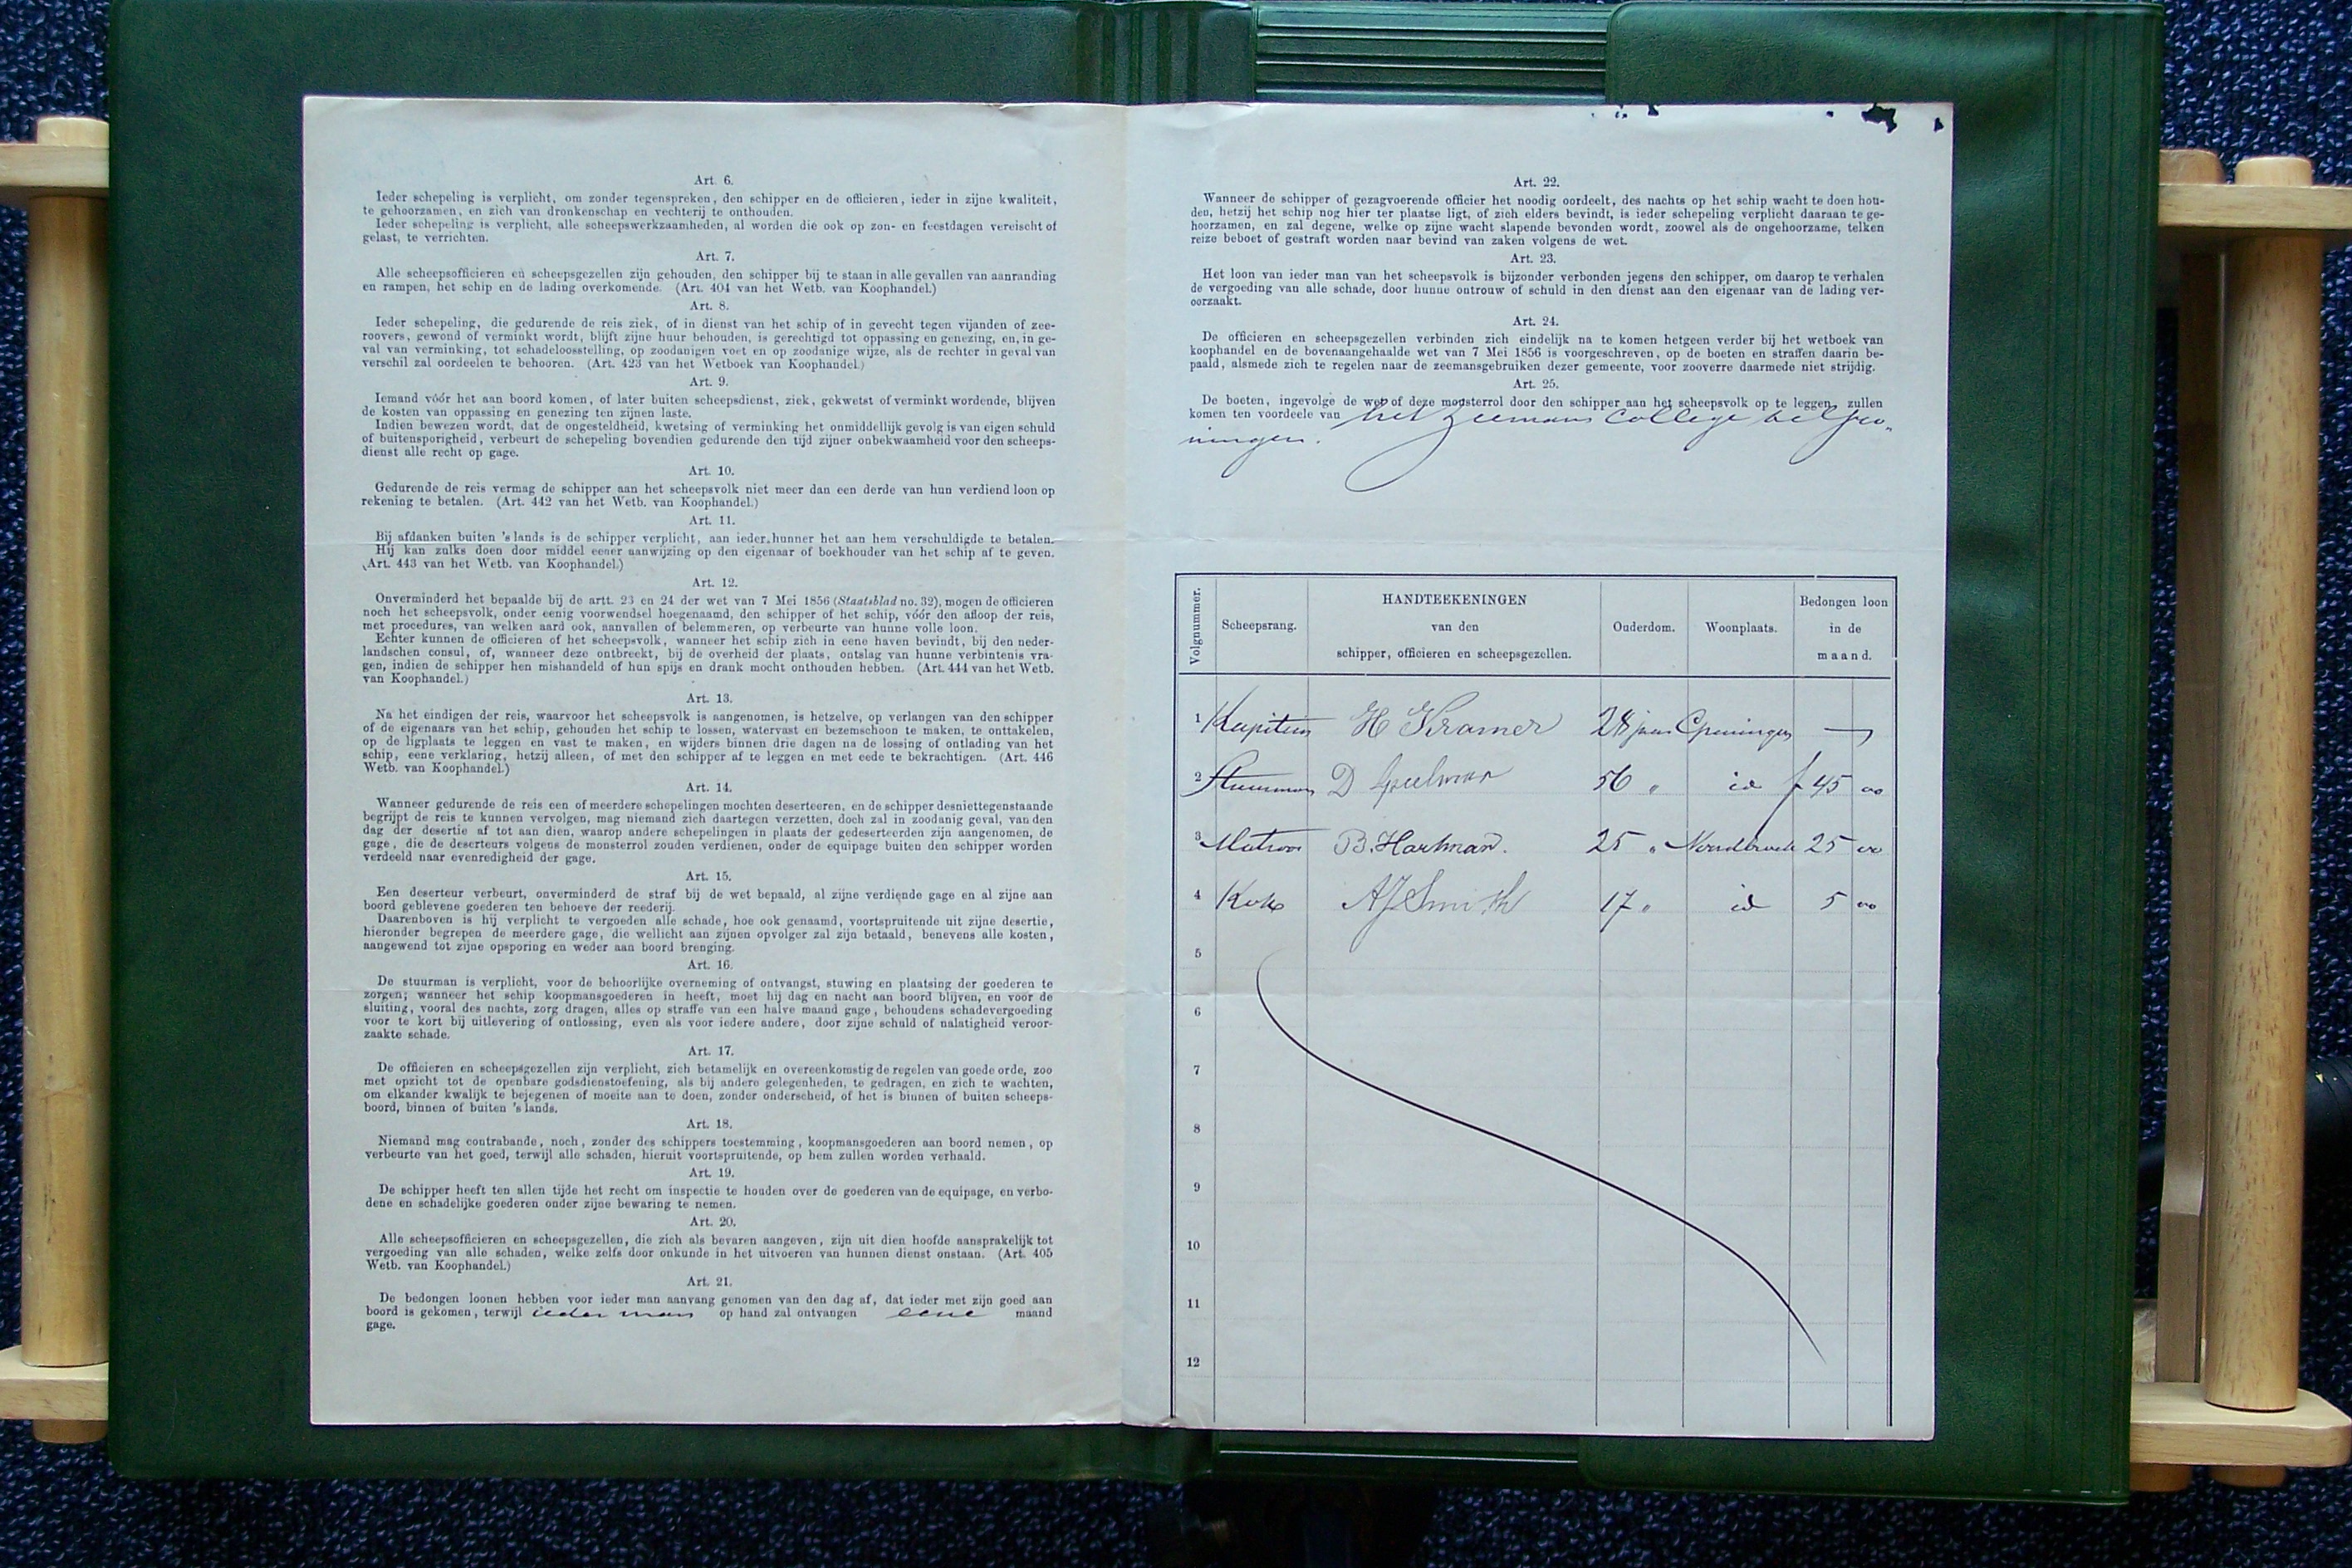 Art. 6.
Ieder schepeling is verplicht, om zonder tegenspreken, den schipper en de officieren, ieder in zijne kwaliteit,
te gehoorzamen, en zich van dronkenschap en vechterij te onthouden.
Ieder schepeling is verplicht, alle scheepswerkzaamheden, al worden die ook op zon- en feestdagen vereischt of
gelast, te verrichten.
Art. 7.
Alle scheepsofficieren en scheepsgezellen zijn gehouden, den schipper bij te staan in alle gevallen van aanranding
en rampen, het schip en de lading overkomende. (Art. 404 van het Wetb. van Koophandel.)
Art. 8.
Ieder schepeling, die gedurende de reis ziek, of in dienst van het schip of in gevecht tegen vijanden of zee-
roovers, gewond of verminkt wordt, blijft zijne huur behouden, is gerechtigd tot oppassing en genezing, en, in ge-
val van verminking, tot schadeloosstelling, op zoodanigen voet en op zoodanige wijze, als de rechter in geval van
verschil zal oordeelen te behooren. (Art. 423 van het Wetboek van Koophandel.)
Art. 9.
Iemand vóór het aan boord komen, of later buiten scheepsdienst, ziek, gekwetst of verminkt wordende, blijven
de kosten van oppassing en genezing ten zijnen laste.
Indien bewezen wordt, dat de ongesteldheid, kwetsing of verminking het onmiddellijk gevolg is van eigen schuld
of buitensporigheid, verbeurt de schepeling bovendien gedurende den tijd zijner onbekwaamheid voor den scheeps-
dienst alle recht op gage.
Art. 10.
Gedurende de reis vermag de schipper aan het scheepsvolk niet meer dan een derde van hun verdiend loon op
rekening te betalen. (Art. 442 van het Wetb. van Koophandel.)
Art. 11.
Bij afdanken buiten 's lands is de schipper verplicht, aan ieder hunner het aan hem verschuldigde te betalen.
Hij kan zulks doen door middel eener aanwijzing op den eigenaar of boekhouder van het schip af te geven.
(Art. 443 van het Wetb. van Koophandel.)
Art. 12.
Onverminderd het bepaalde bij de artt. 23 en 24 der wet van 7 Mei 1856 (Staatsblad no. 32), mogen de officieren
noch het scheepsvolk, onder eenig voorwendsel hoegenaamd, den schipper of het schip, vóór den afloop der reis,
met procedures, van welken aard ook, aanvallen of belemmeren, op verbeurte van hunne volle loon.
Echter kunnen de officieren of het scheepsvolk, wanneer het schip zich in eene haven bevindt, bij den neder-
landschen consul, of, wanneer deze ontbreekt, bij de overheid der plaats, ontslag van hunne verbintenis vra-
gen, indien de schipper hen mishandeld of hun spijs en drank mocht onthouden hebben. (Art. 444 van het Wetb.
van Koophandel.)
Art. 13.
Na het eindigen der reis, waarvoor het scheepsvolk is aangenomen, is hetzelve, op verlangen van den schipper
of de eigenaars van het schip, gehouden het schip te lossen, watervast en bezemschoon te maken, te onttakelen,
op de ligplaats te leggen en vast te maken, en wijders binnen drie dagen na de lossing of ontlading van het
schip, eene verklaring, hetzij alleen, of met den schipper af te leggen en met eede te bekrachtigen. (Art. 446
Wetb. van Koophandel.)
Art. 14.
Wanneer gedurende de reis een of meerdere schepelingen mochten deserteeren, en de schipper desniettegenstaande
begrijpt de reis te kunnen vervolgen, mag niemand zich daartegen verzetten, doch zal in zoodanig geval, van den
dag der desertie af tot aan dien, waarop andere schepelingen in plaats der gedeserteerden zijn aangenomen, de
gage, die de deserteurs volgens de monsterrol zouden verdienen, onder de equipage buiten den schipper worden
verdeeld naar evenredigheid der gage.
Art. 15.
Een deserteur verbeurt, onverminderd de straf bij de wet bepaald, al zijne verdiende gage en al zijne aan
boord geblevene goederen ten behoeve der reederij.
Daarenboven is hij verplicht te vergoeden alle schade, hoe ook genaamd, voortspruitende uit zijne desertie,
hieronder begrepen de meerdere gage, die wellicht aan zijnen opvolger zal zijn betaald, benevens alle kosten,
aangewend tot zijne opsporing en weder aan boord brenging.
Art. 16.
De stuurman is verplicht, voor de behoorlijke overneming of ontvangst, stuwing en plaatsing der goederen te
zorgen; wanneer het schip koopmansgoederen in heeft, moet hij dag en nacht aan boord blijven, en voor de
sluiting, vooral des nachts, zorg dragen, alles op straffe van een halve maand gage, behoudens schadevergoeding
voor te kort bij uitlevering of ontlossing, even als voor iedere andere, door zijne schuld of nalatigheid veroor-
zaakte schade.
Art. 17.
De officieren en scheepsgezellen zijn verplicht, zich betamelijk en overeenkomstig de regelen van goede orde, zoo
met opzicht tot de openbare godsdienstoefening, als bij andere gelegenheden, te gedragen, en zich te wachten,
om elkander kwalijk te bejegenen of moeite aan te doen, zonder onderscheid, of het is binnen of buiten scheeps-
boord, binnen of buiten 's lands.
Art. 18.
Niemand mag contrabande, noch, zonder des schippers toestemming, koopmansgoederen aan boord nemen, op
verbeurte van het goed, terwijl alle schaden, hieruit voortspruitende, op hem zullen worden verhaald.
Art. 19.
De schipper heeft ten allen tijde het recht om inspectie te houden over de goederen van de equipage, en verbo-
dene en schadelijke goederen onder zijne bewaring te nemen.
Art. 20.
Alle scheepsofficieren en scheepsgezellen, die zich als bevaren aangeven, zijn uit dien hoofde aansprakelijk tot
vergoeding van alle schaden, welke zelfs door onkunde in het uitvoeren van hunnen dienst onstaan. (Art. 405
Wetb. van Koophandel.)
Art. 21.
De bedongen loonen hebben voor ieder man aanvang genomen van den dag af, dat ieder met zijn goed aan
boord is gekomen, terwijl ieder man op hand zal ontvangen eene maand
gage.
Art. 22.
Wanneer de schipper of gezagvoerende officier het noodig oordeelt, des nachts op het schip wacht te doen hou-
den, hetzij het schip nog hier ter plaatse ligt, of zich elders bevindt, is ieder schepeling verplicht daaraan te ge-
hoorzamen, en zal degene, welke op zijne wacht slapende bevonden wordt, zoowel als de ongehoorzame, telken
reize beboet of gestraft worden naar bevind van zaken volgens de wet.
Art. 23.
Het loon van ieder man van het scheepsvolk is bijzonder verbonden jegens den schipper, om daarop te verhalen
de vergoeding van alle schade, door hunne ontrouw of schuld in den dienst aan den eigenaar van de lading ver-
oorzaakt.
Art. 24.
De officieren en scheepsgezellen verbinden zich eindelijk na te komen hetgeen verder bij het wetboek van
koophandel en de bovenaangehaalde wet van 7 Mei 1856 is voorgeschreven, op de boeten en straffen daarin be-
paald, alsmede zich te regelen naar de zeemansgebruiken dezer gemeente, voor zooverre daarmede niet strijdig.
Art. 25.
De boeten, ingevolge de wet of deze monsterrol door den schipper aan het scheepsvolk op te leggen, zullen
komen ten voordeele van het Zeemans College te Gro„
ningen.
Volgnummer. Scheepsrang. HANDTEEKENINGEN van den schipper, officieren en scheepsgezellen. Ouderdom. Woonplaats. Bedongen loon in de maand.
1 Kapitein H Kramer 28 jaar Groningen —
2 Stuurman D Speelman 56 „ id f 45 00
3 Matroos B. Hartman. 25 „ Noordbroek 25 00
4 Kok AJ Smith 17 „ id 5 00
5
6
7
8
9
10
11
12